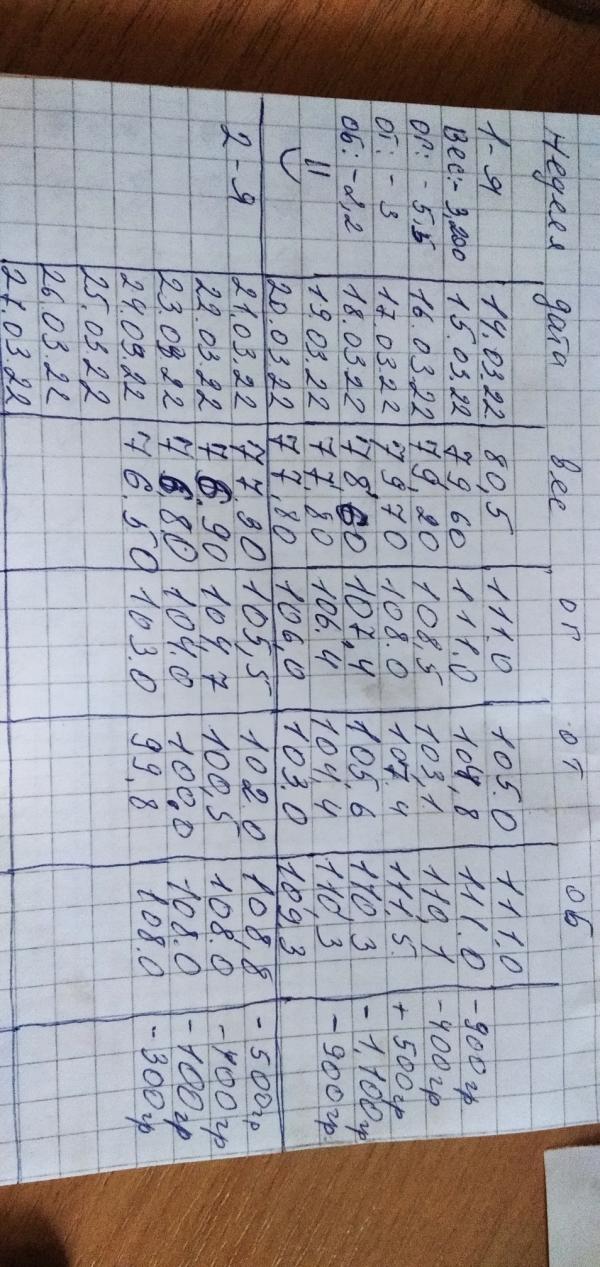 Неделя дата вес ог от об
1-я 14.03.22 80,5 111.0 105.0 111,0
Вес:- 3,200 15.03.22 79.60 111.0 104,8 111.0 -900 гр
ог: - 5,5 16.03.22 79,20 108,5 103,1 110,1 -400 гр
от: - 3 17.03.22 79,70 108.0 107.4 111,5 +500 гр
об: - 2,2 18.03.22 78,60 107,4 105,6 110,3 -1,100 гр
19.03.22 77,80 106.4 104,4 110,3 -900 гр
20.03.22 77,80 106,0 103.0 109,3
2-я 21.03.22 77.30 105,5 102.0 108,8 -500 гр
22.03.22 76.90 104,7 100,5 108.0 -400 гр
23.03.22 76,80 104,0 100,0 108.0 -100 гр
24.03.22 76.50 103.0 99,8 108.0 -300 гр
25.03.22
26.03.22
27.03.22